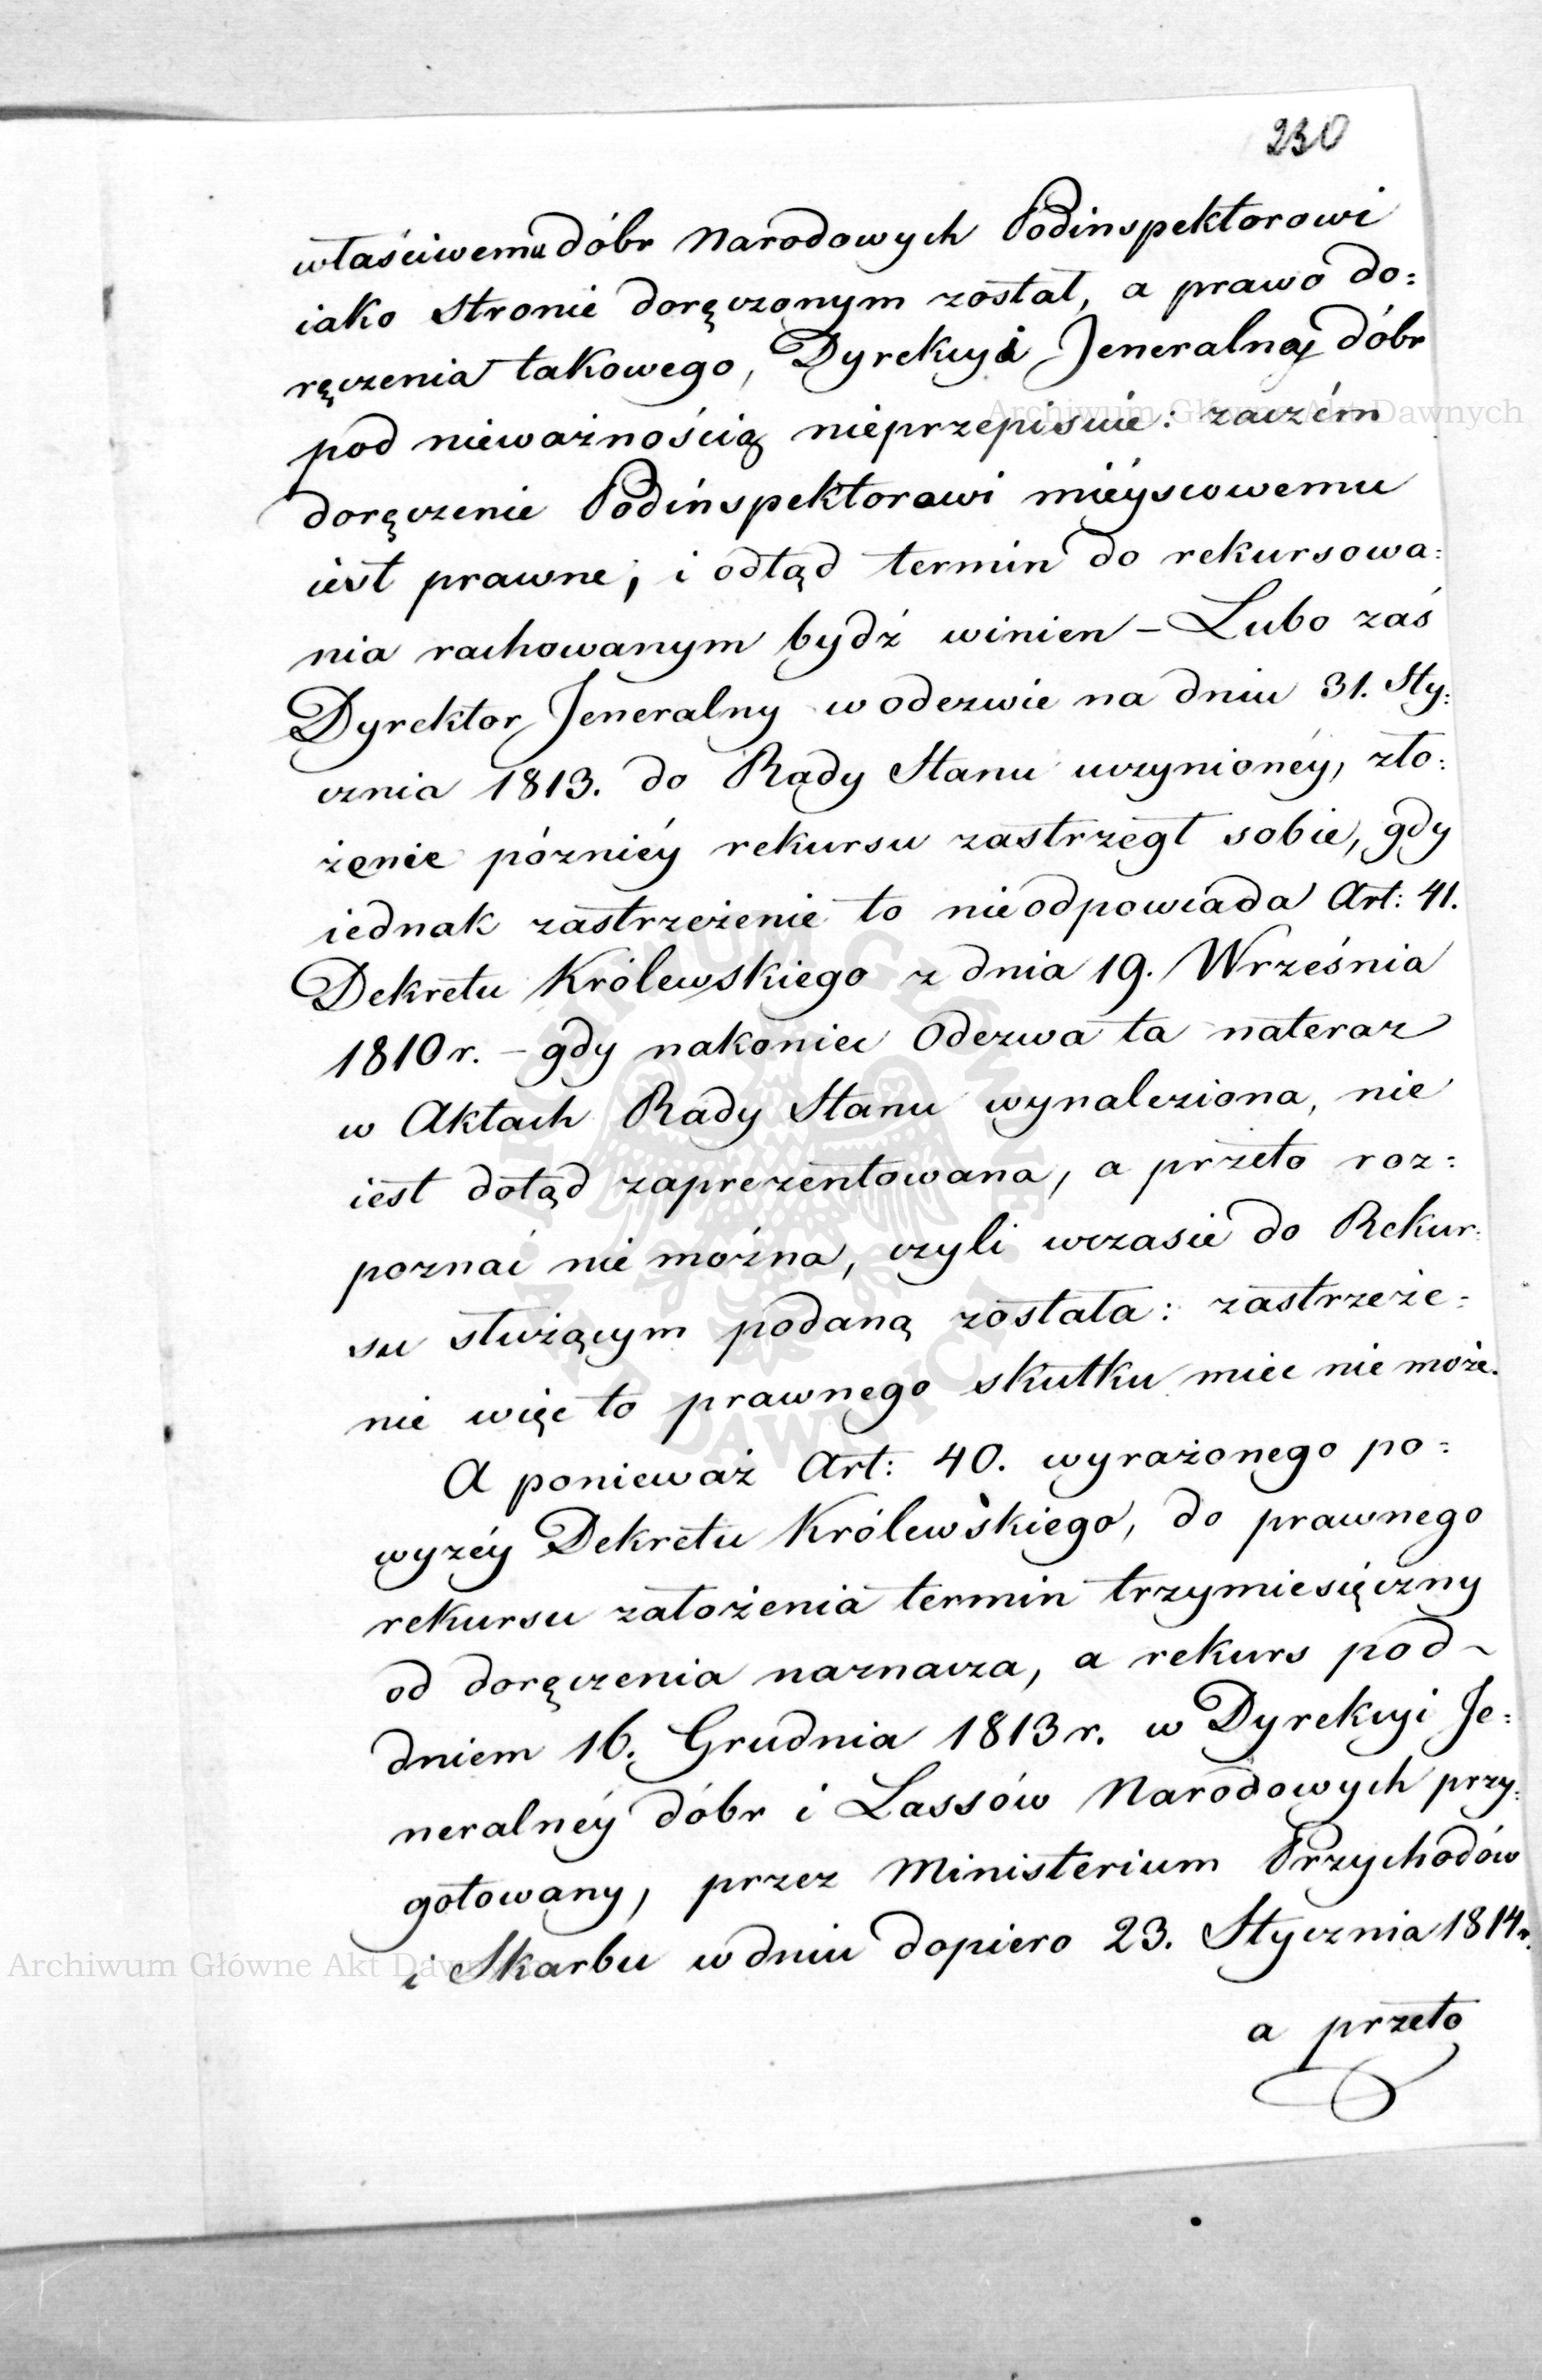 230
właściwemu dóbr Narodowych Podinspektorowi
iako stronie doręczonym został, a prawo do:
ręczenia takowego, Dyrekcyi Jeneralney dóbr
pod nieważnością nieprzepisuie: zaczém
doręczenie Podinspektorowi mieyscowemu
iest prawne, i odtąd termin do rekursowa:
nia rachowanym bydź winien – Lubo zaś
Dyrektor Jeneralny w odezwie na dniu 31. Sty:
cznia 1813. do Rady Stanu uczynioney, zło:
żenie pózniéy rekursu zastrzegł sobie, gdy
iednak zastrzeżenie to nieodpowiada Art: 41.
Dekretu Królewskiego z dnia 19. Września
1810 r. – gdy nakoniec Odezwa ta nateraz
w Aktach Rady Stanu wynaleziona, nie
iest dotąd zaprezentowana, a przeto roz:
poznać nie można, czyli wczasie do Rekur:
su służącym podaną została: zastrzeże:
nie więc to prawnego skutku mieć nie może.
A ponieważ Art: 40. wyrażonego po:
wyzéy Dekretu Królewskiego, do prawnego
rekursu założenia termin trzymiesięczny
od doręczenia naznacza, a rekurs pod~
dniem 16. Grudnia 1813 r. w Dyrekcyi Je:
neralnéy dóbr i Lassów Narodowych przy:
gotowany, przez Ministerium Przychodów
i Skarbu w dniu dopiero 23. Stycznia 1814 r.
a przeto
Archiwum Główne Akt Dawnych
Archiwum Główne Akt Dawnych
ARCHIWUM GŁÓWNE AKT DAWNYCH